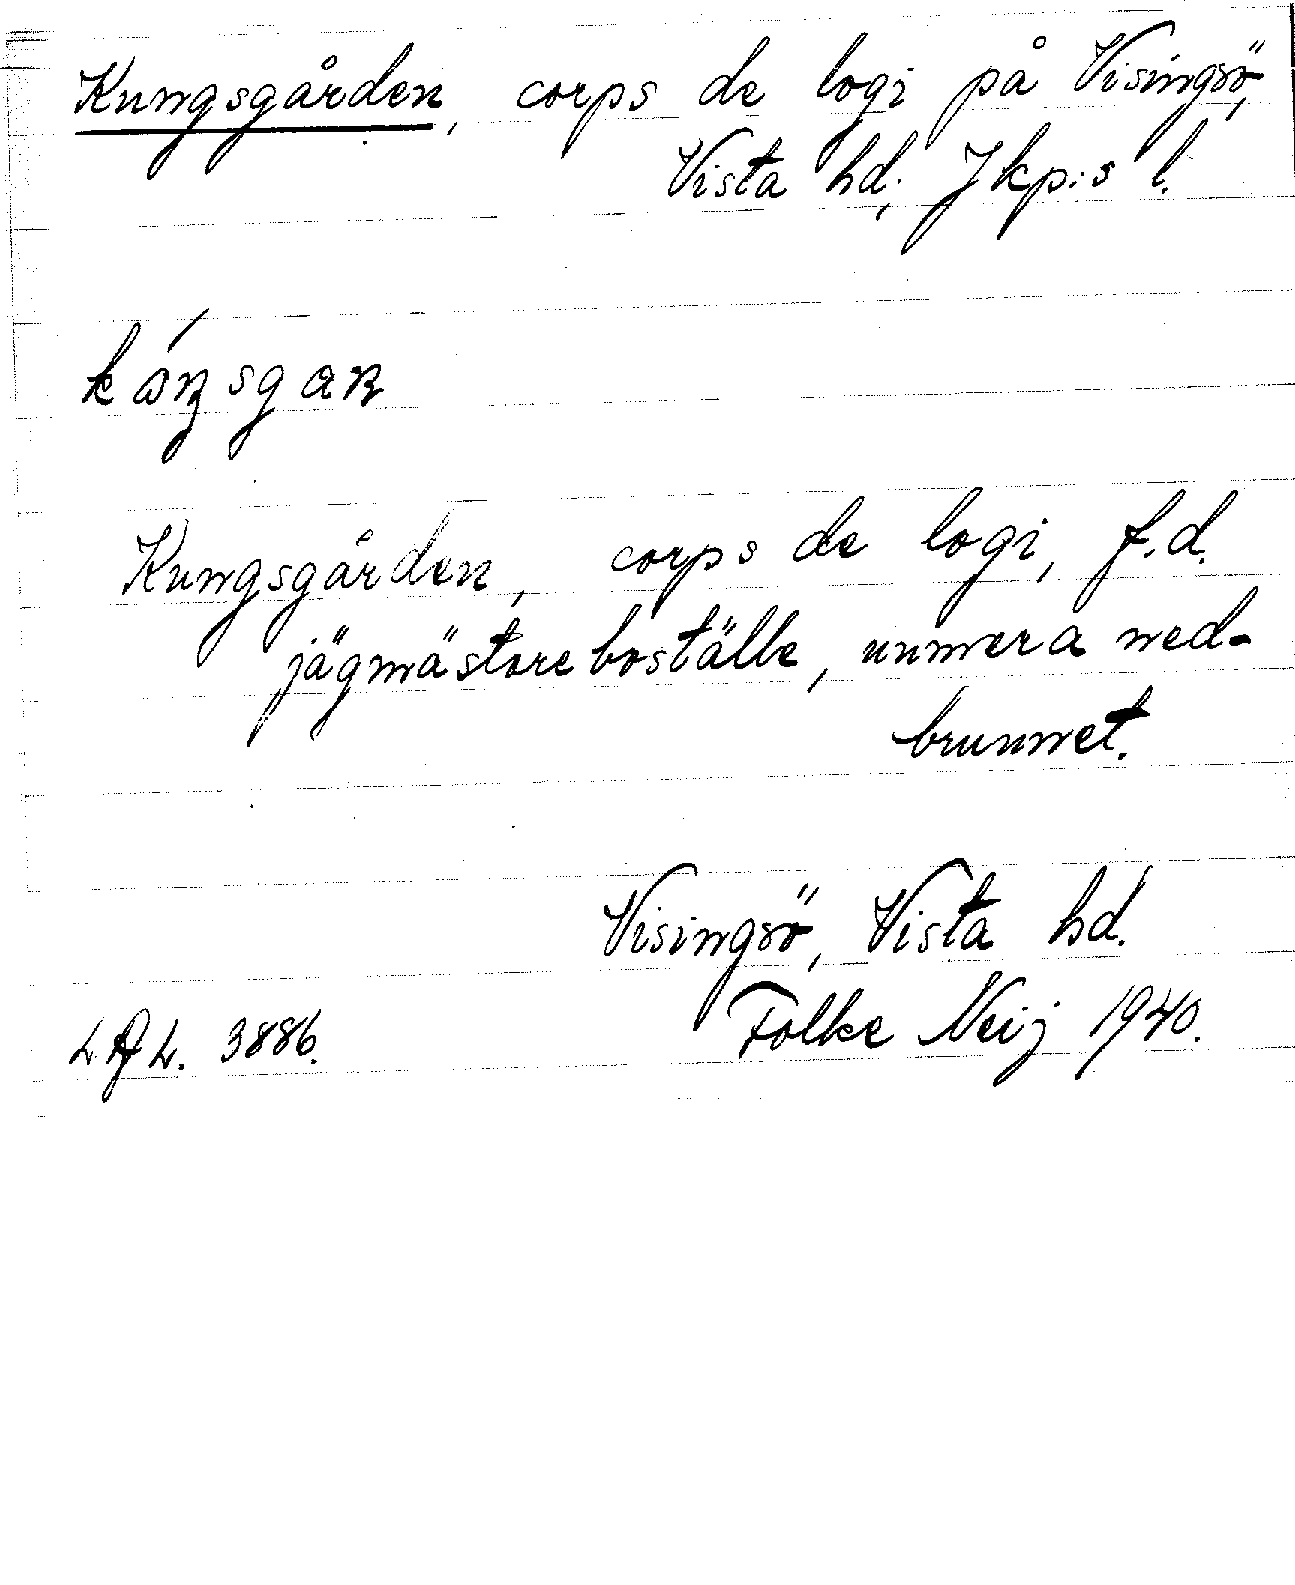 Kungsgården, corps de logi på Visingsö,
Vista hd; Jkp:s l.
Kungsgården, corps de logi, f.d.
jägmästareboställe, numera ned-
brunnet.
Visingsö, Vista hd.
L A L. 3886.
Folke Neij 1940.